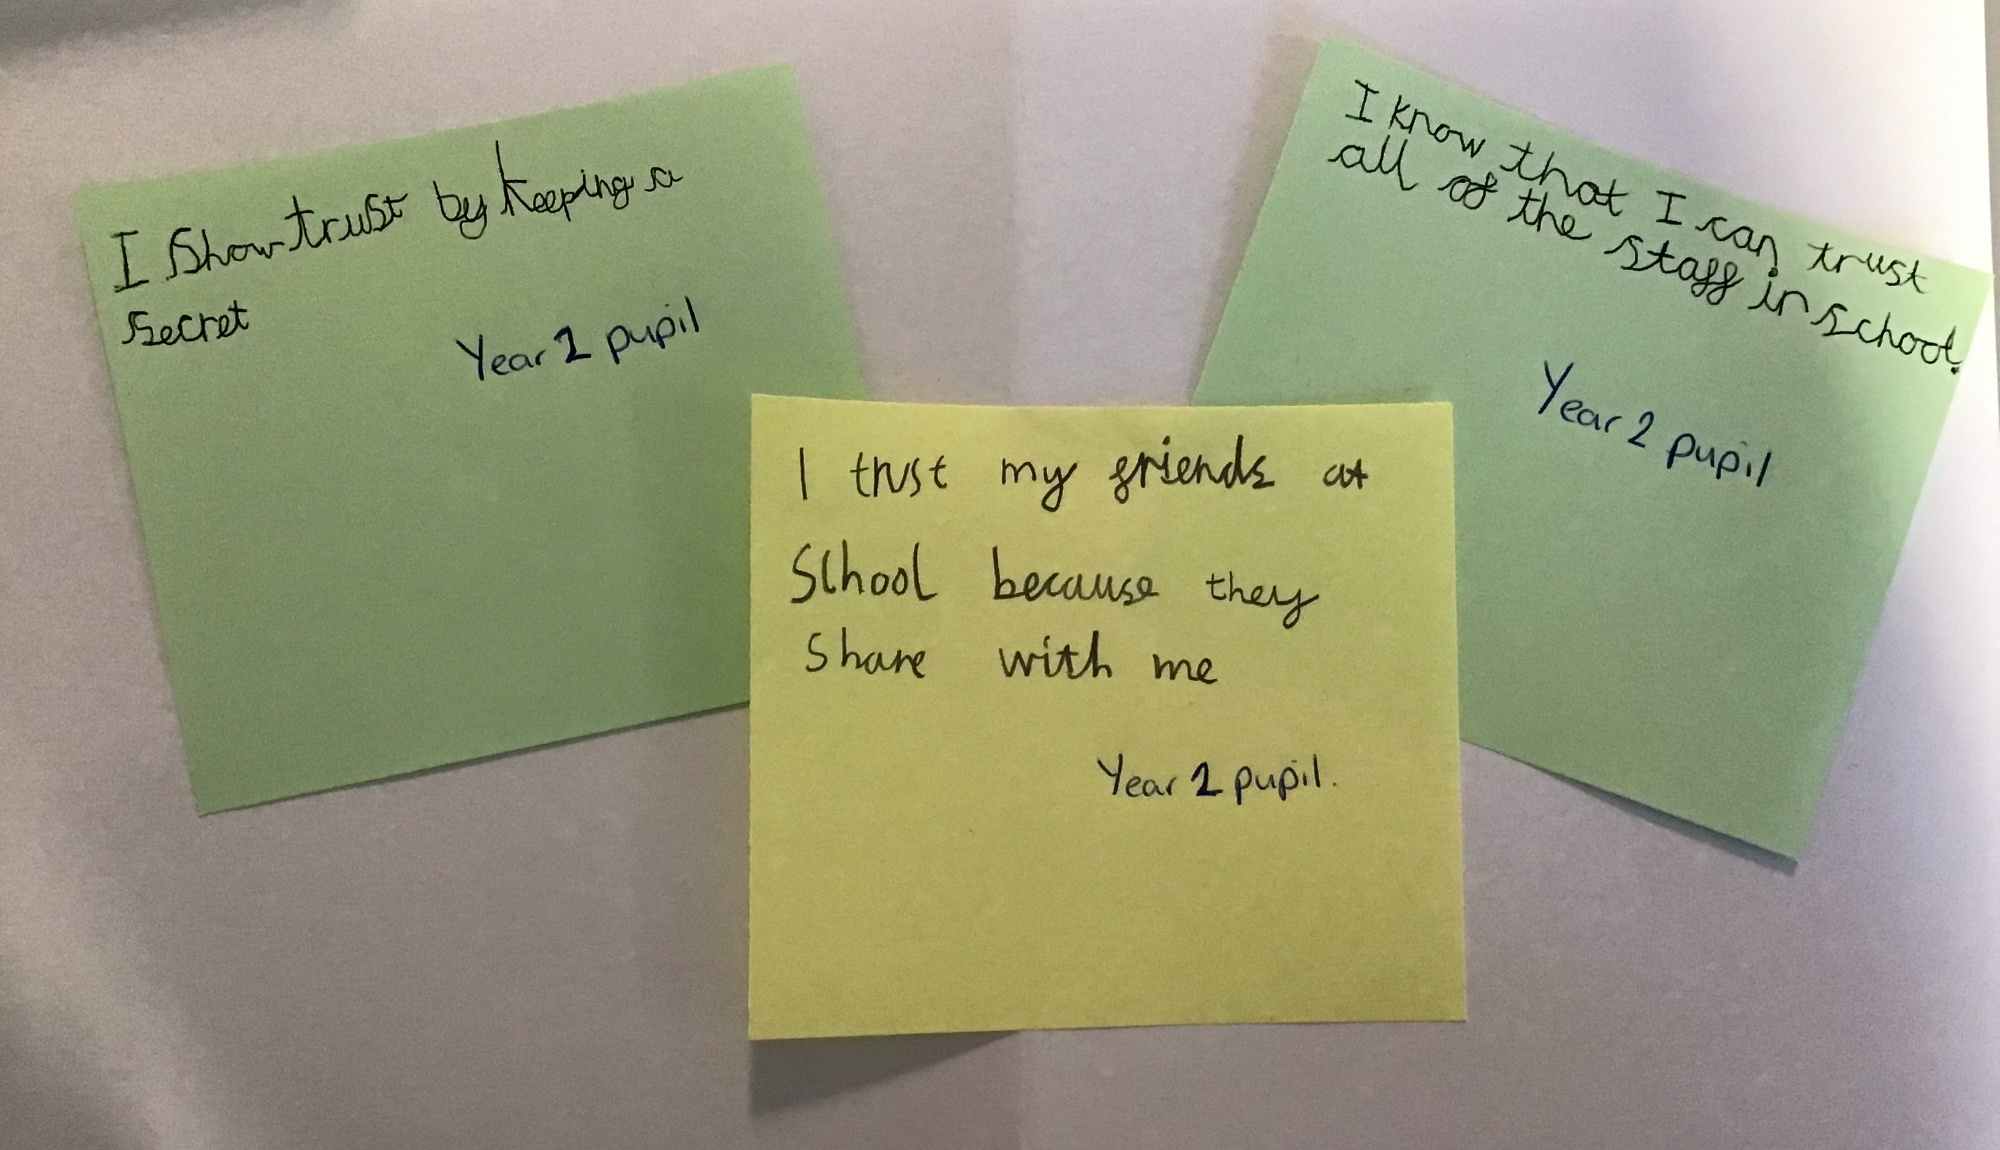 I Show trust by keeping a
Secret
Year 2 pupil
I know that I can trust
all of the staff in school.
Year 2 pupil
I trust my friends at
School because they
Share with me
Year 2 pupil.